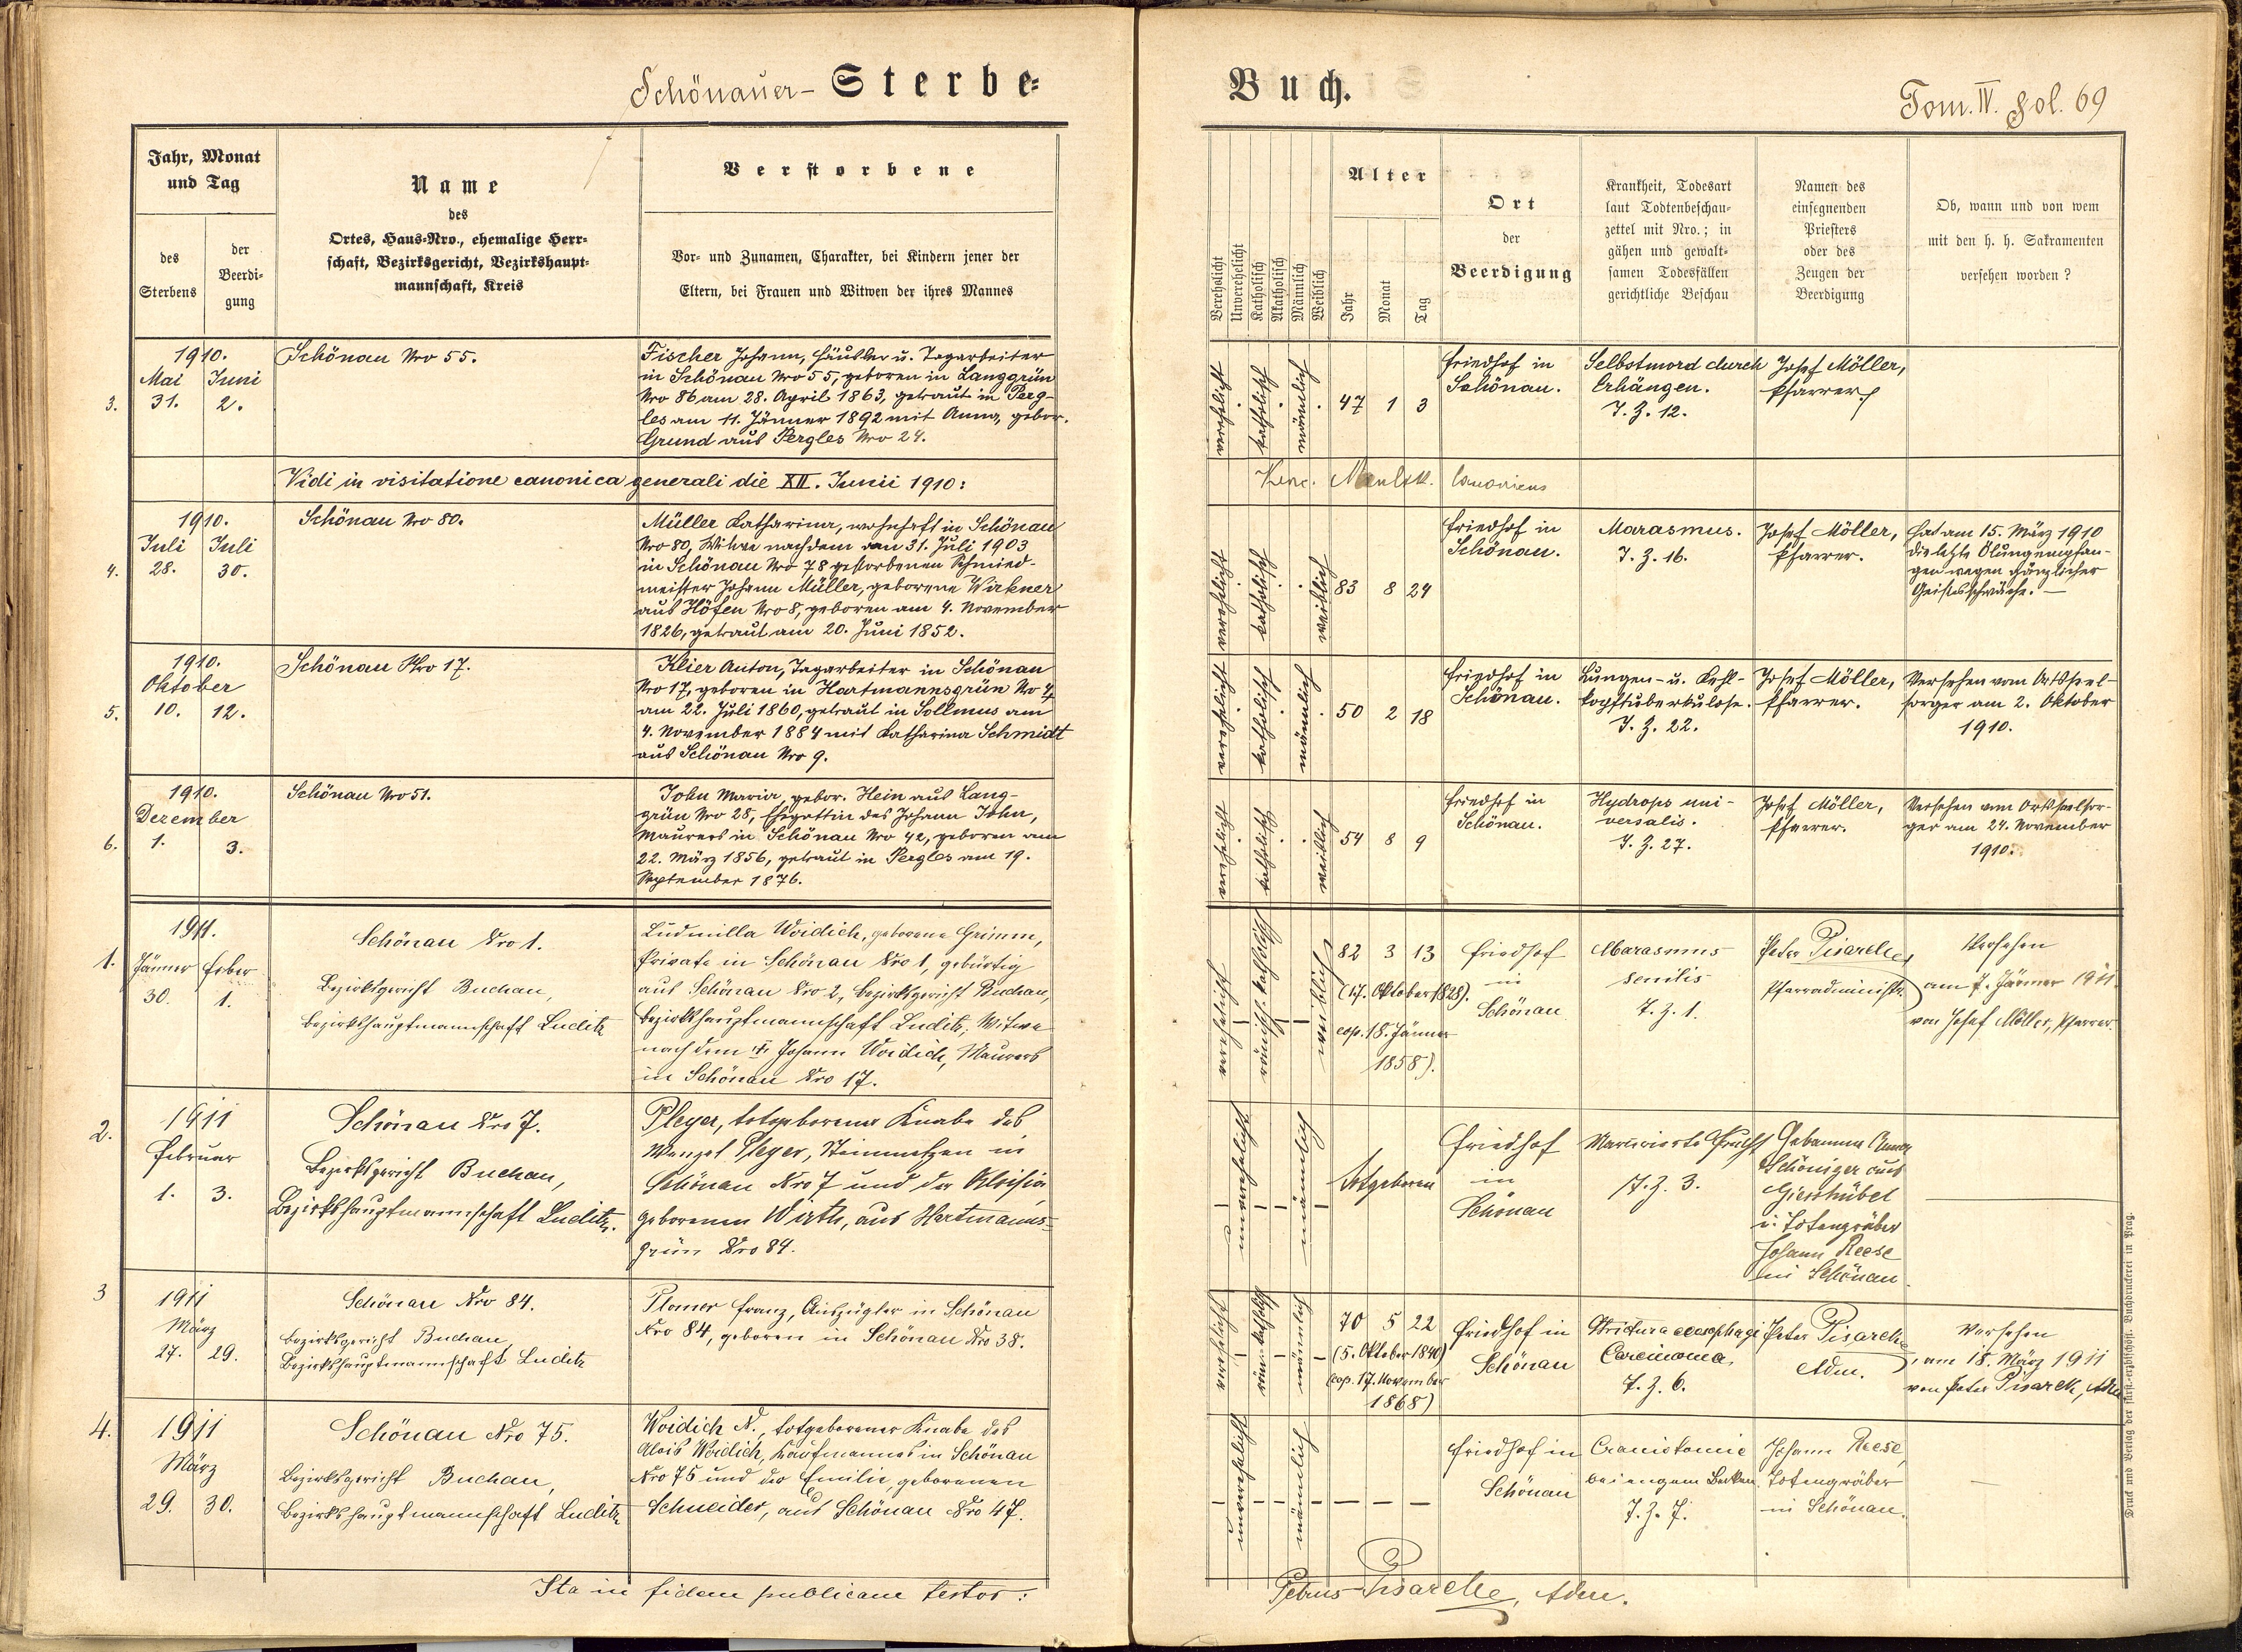 Schönauer- Sterbe=
Buch.
Tom. IV. Fol. 69
Jahr, Monat
und Tag
des
Sterbens
der
Beerdi=
gung
Name
des
Ortes, Haus=Nro., ehemalige Herr=
schaft, Bezirksgericht, Bezirkshaupt=
mannschaft, Kreis
Verstorbene
Vor= und Zunamen, Charakter, bei Kindern jener der
Eltern, bei Frauen und Witwen der ihres Mannes
Verehelicht
Unverehelicht
Katholisch
Akatholisch
Männlich
Weiblich
Alter
Jahr
Monat
Tag
Ort
der
Beerdigung
Krankheit, Todesart
laut Todtenbeschau=
zettel mit Nro.; in
gähen und gewalt=
samen Todesfällen
gerichtliche Beschau
Namen des
einsegnenden
Priesters
oder des
Zeugen der
Beerdigung
Ob, wann und von wem
mit den h. h. Sakramenten
versehen worden?
3.
1910.
Mai Juni
31. 2.
Schönau Nro 55.
Fischer Johann, Häusler u. Tagarbeiter
in Schönau Nro 55, geboren in Langgrün
Nro 86 am 28. April 1863, getraut in Perg-
les am 11. Jänner 1892 mit Anna, gebor.
Grund aus Pergles Nro 24.
verehelicht
katholisch
männlich
47 1 3
Friedhof in
Schönau.
Selbstmord durch
Erhängen.
T. Z. 12.
Josef Möller,
Pfarrer
Vidi in visitatione canonica generali die XII. Junii 1910:
Canonicus
4.
1910.
Juli Juli
28. 30.
Schönau Nro 80.
Müller Katharina, wohnhaft in Schönau
Nro 80, Witwe nach dem am 31. Juli 1903
in Schönau Nro 78 gestorbenen Schmied-
meister Johann Müller, geborene Wirkner
aus Höfen Nro 8, geboren am 4. November
1826, getraut am 20. Juni 1852.
verehelicht
katholisch
weiblich
83 8 24
Friedhof in
Schönau.
Marasmus.
T. Z. 16.
Josef Möller,
Pfarrer.
Hat am 15. März 1910
die letzte Ölung empfan-
gen wegen gänzlicher
Geistesschwäche. —
5.
1910.
Oktober
10. 12.
Schönau Nro 17.
Klier Anton, Tagarbeiter in Schönau
Nro 17, geboren in Hartmannsgrün Nro 4,
am 22. Juli 1860, getraut in Sollmus am
4. November 1884 mit Katharina Schmidt
aus Schönau Nro 9.
verehelicht
katholisch
männlich
50 2 18
Friedhof in
Schönau.
Lungen- u. Kehl-
kopftuberkulose.
T. Z. 22.
Josef Möller,
Pfarrer.
Versehen vom Ortsseel-
sorger am 2. Oktober
1910.
6.
1910.
Dezember
1. 3.
Schönau Nro 51.
John Maria, gebor. Hein aus Lang-
grün Nro 28, Ehegattin des Johann John,
Maurers in Schönau Nro 42, geboren am
22. März 1856, getraut in Pergles am 19.
September 1876.
verehelicht
katholisch
weiblich
54 8 9
Friedhof in
Schönau.
Hydrops uni-
versalis.
T. Z. 27.
Josef Möller,
Pfarrer.
Versehen vom Ortsseelsor-
ger am 24. November
1910.
1.
1911.
Jänner Feber
30. 1.
Schönau Nro 1.
Bezirksgericht Buchau,
Bezirkshauptmannschaft Luditz
Ludmilla Woidich, geborene Grimm,
Private in Schönau Nro 1, gebürtig
aus Schönau Nro 2, Bezirksgericht Buchau,
Bezirkshauptmannschaft Luditz; Witwe
nach dem † Johann Woidich, Maurers
in Schönau Nro 17.
verehelicht
römisch-katholisch
weiblich
82 3 13
(17. Oktober 1828).
cop. 18. Jänner
1858).
Friedhof
in
Schönau
Marasmus
senilis
T. Z. 1.
Peter Pisarche
Pfarradministr.
Versehen
am 7. Jänner 1911
von Josef Möller, Pfarrer.
2.
1911
Februar
1. 3.
Schönau Nro 7.
Bezirksgericht Buchau,
Bezirkshauptmannschaft Luditz.
Pleyer, totgeborener Knabe des
Wenzel Pleyer, Steinmetzen in
Schönau Nro 7 und der Aloisia
geborenen Wirth, aus Hartmanns=
grün Nro 84.
unverehelicht
männlich
Totgeboren
Friedhof
in
Schönau
Mazerierte Frucht
T. Z. 3.
Hebamme Anna
Schöniger aus
Giesshübel
u. Totengräber
Johann Reese
in Schönau
3
1911
März
27. 29.
Schönau Nro 84.
Bezirksgericht Buchau
Bezirkshauptmannschaft Luditz
Plomer Franz, Auszügler in Schönau
Nro 84, geboren in Schönau Nro 38.
verehelicht
röm.-katholisch
männlich
70 5 22
(5. Oktober 1840)
(cop. 17. November
1868)
Friedhof in
Schönau
Strictura oesophagi
Carcinoma,
T. Z. 6.
Peter Pisarche
Adm.
Versehen
am 18. März 1911
von Peter Pisarche, Adm
4.
1911
März
29. 30.
Schönau Nro 75.
Bezirksgericht Buchau,
Bezirkshauptmannschaft Luditz
Woidich N., totgeborener Knabe des
Alois Woidich, Kaufmannes in Schönau
Nro 75 und der Emilie, geborenen
Schneider, aus Schönau Nro 47.
unverehelicht
männlich
Friedhof in
Schönau
Craniotomie
bei engem Becken
T. Z. 7.
Johann Reese,
Totengräber
in Schönau.
Ita in fidem publicam testor:
Petrus Pisarche, Adm.
Druck und Verlag der fürst.-erzbischöfl. Buchdruckerei in Prag.